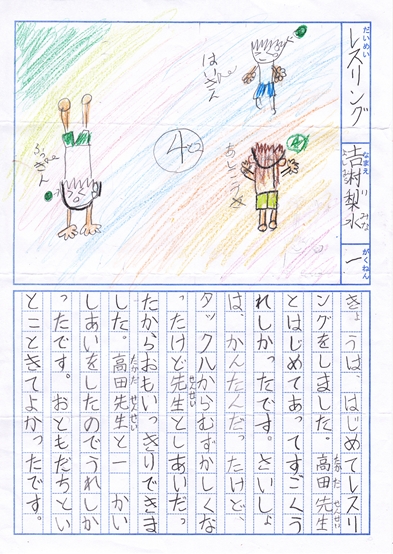 だいめい
レスリング
なまえ
吉村梨水
がくねん
一
はいきん
ふっきん
きょうは、はじめてレスリ
たかだ せんせい
ングをしました。高田先生
とはじめてあってすごくう
れしかったです。さいしょ
は、かんたんだったけど、
タックルからむずかしくな
せんせい
ったけど先生としあいだっ
たからおもいっきりできま
たかだ せんせい
した。高田先生と一 かい
しあいをしたのでうれしか
ったです。おともだちとい
とこときてよかったです。